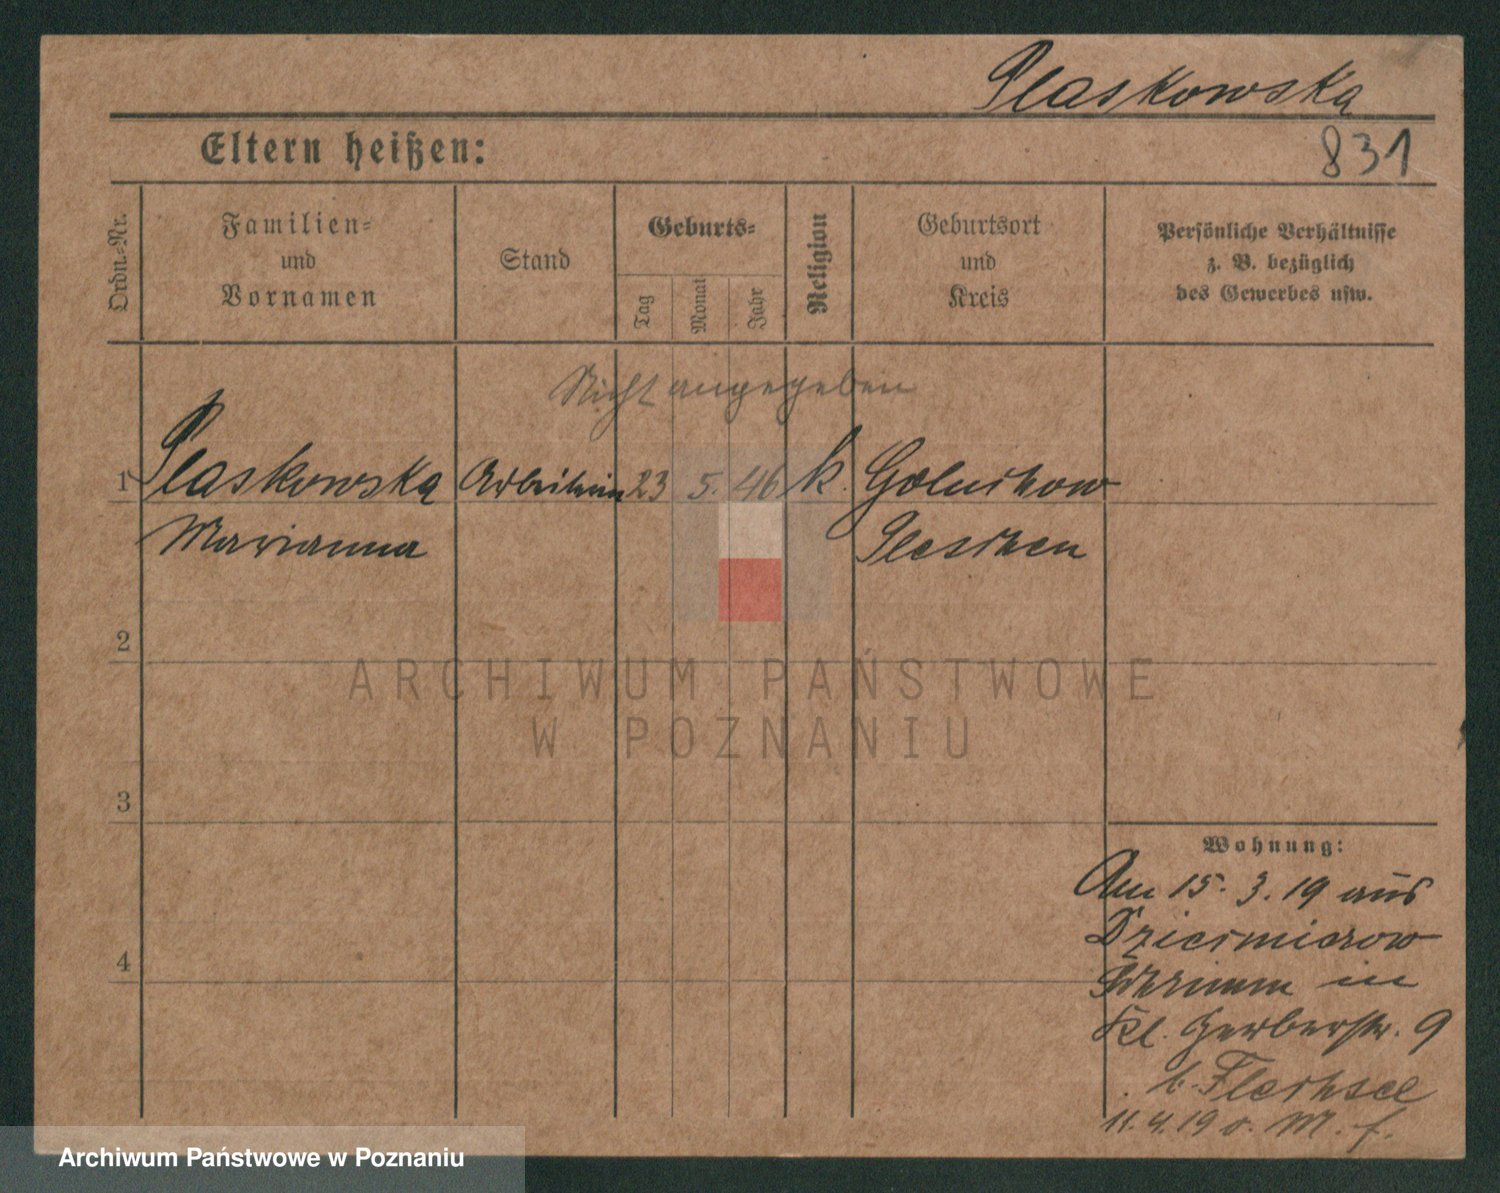 Plaskowska
Eltern heißen:
831
Ordn.-Nr.
Familien-
und
Vornamen
Stand
Geburts-
Tag
Monat
Jahr
Religion
Geburtsort
und
Kreis
Persönliche Verhältnisse
z. B. bezüglich
des Gewerbes usw.
Nicht angegeben
1 Plaskowska Arbeiterin 23 5. 46 k. Goluchow
Marianna Pleschen
2
3
4
ARCHIWUM PAŃSTWOWE
W POZNANIU
Wohnung:
Am 15. 3. 19 aus
Dziecmierow
Schrimm in
Kl. Gerberstr. 9
b.
11.4.19 v. M. f.
Archiwum Państwowe w Poznaniu